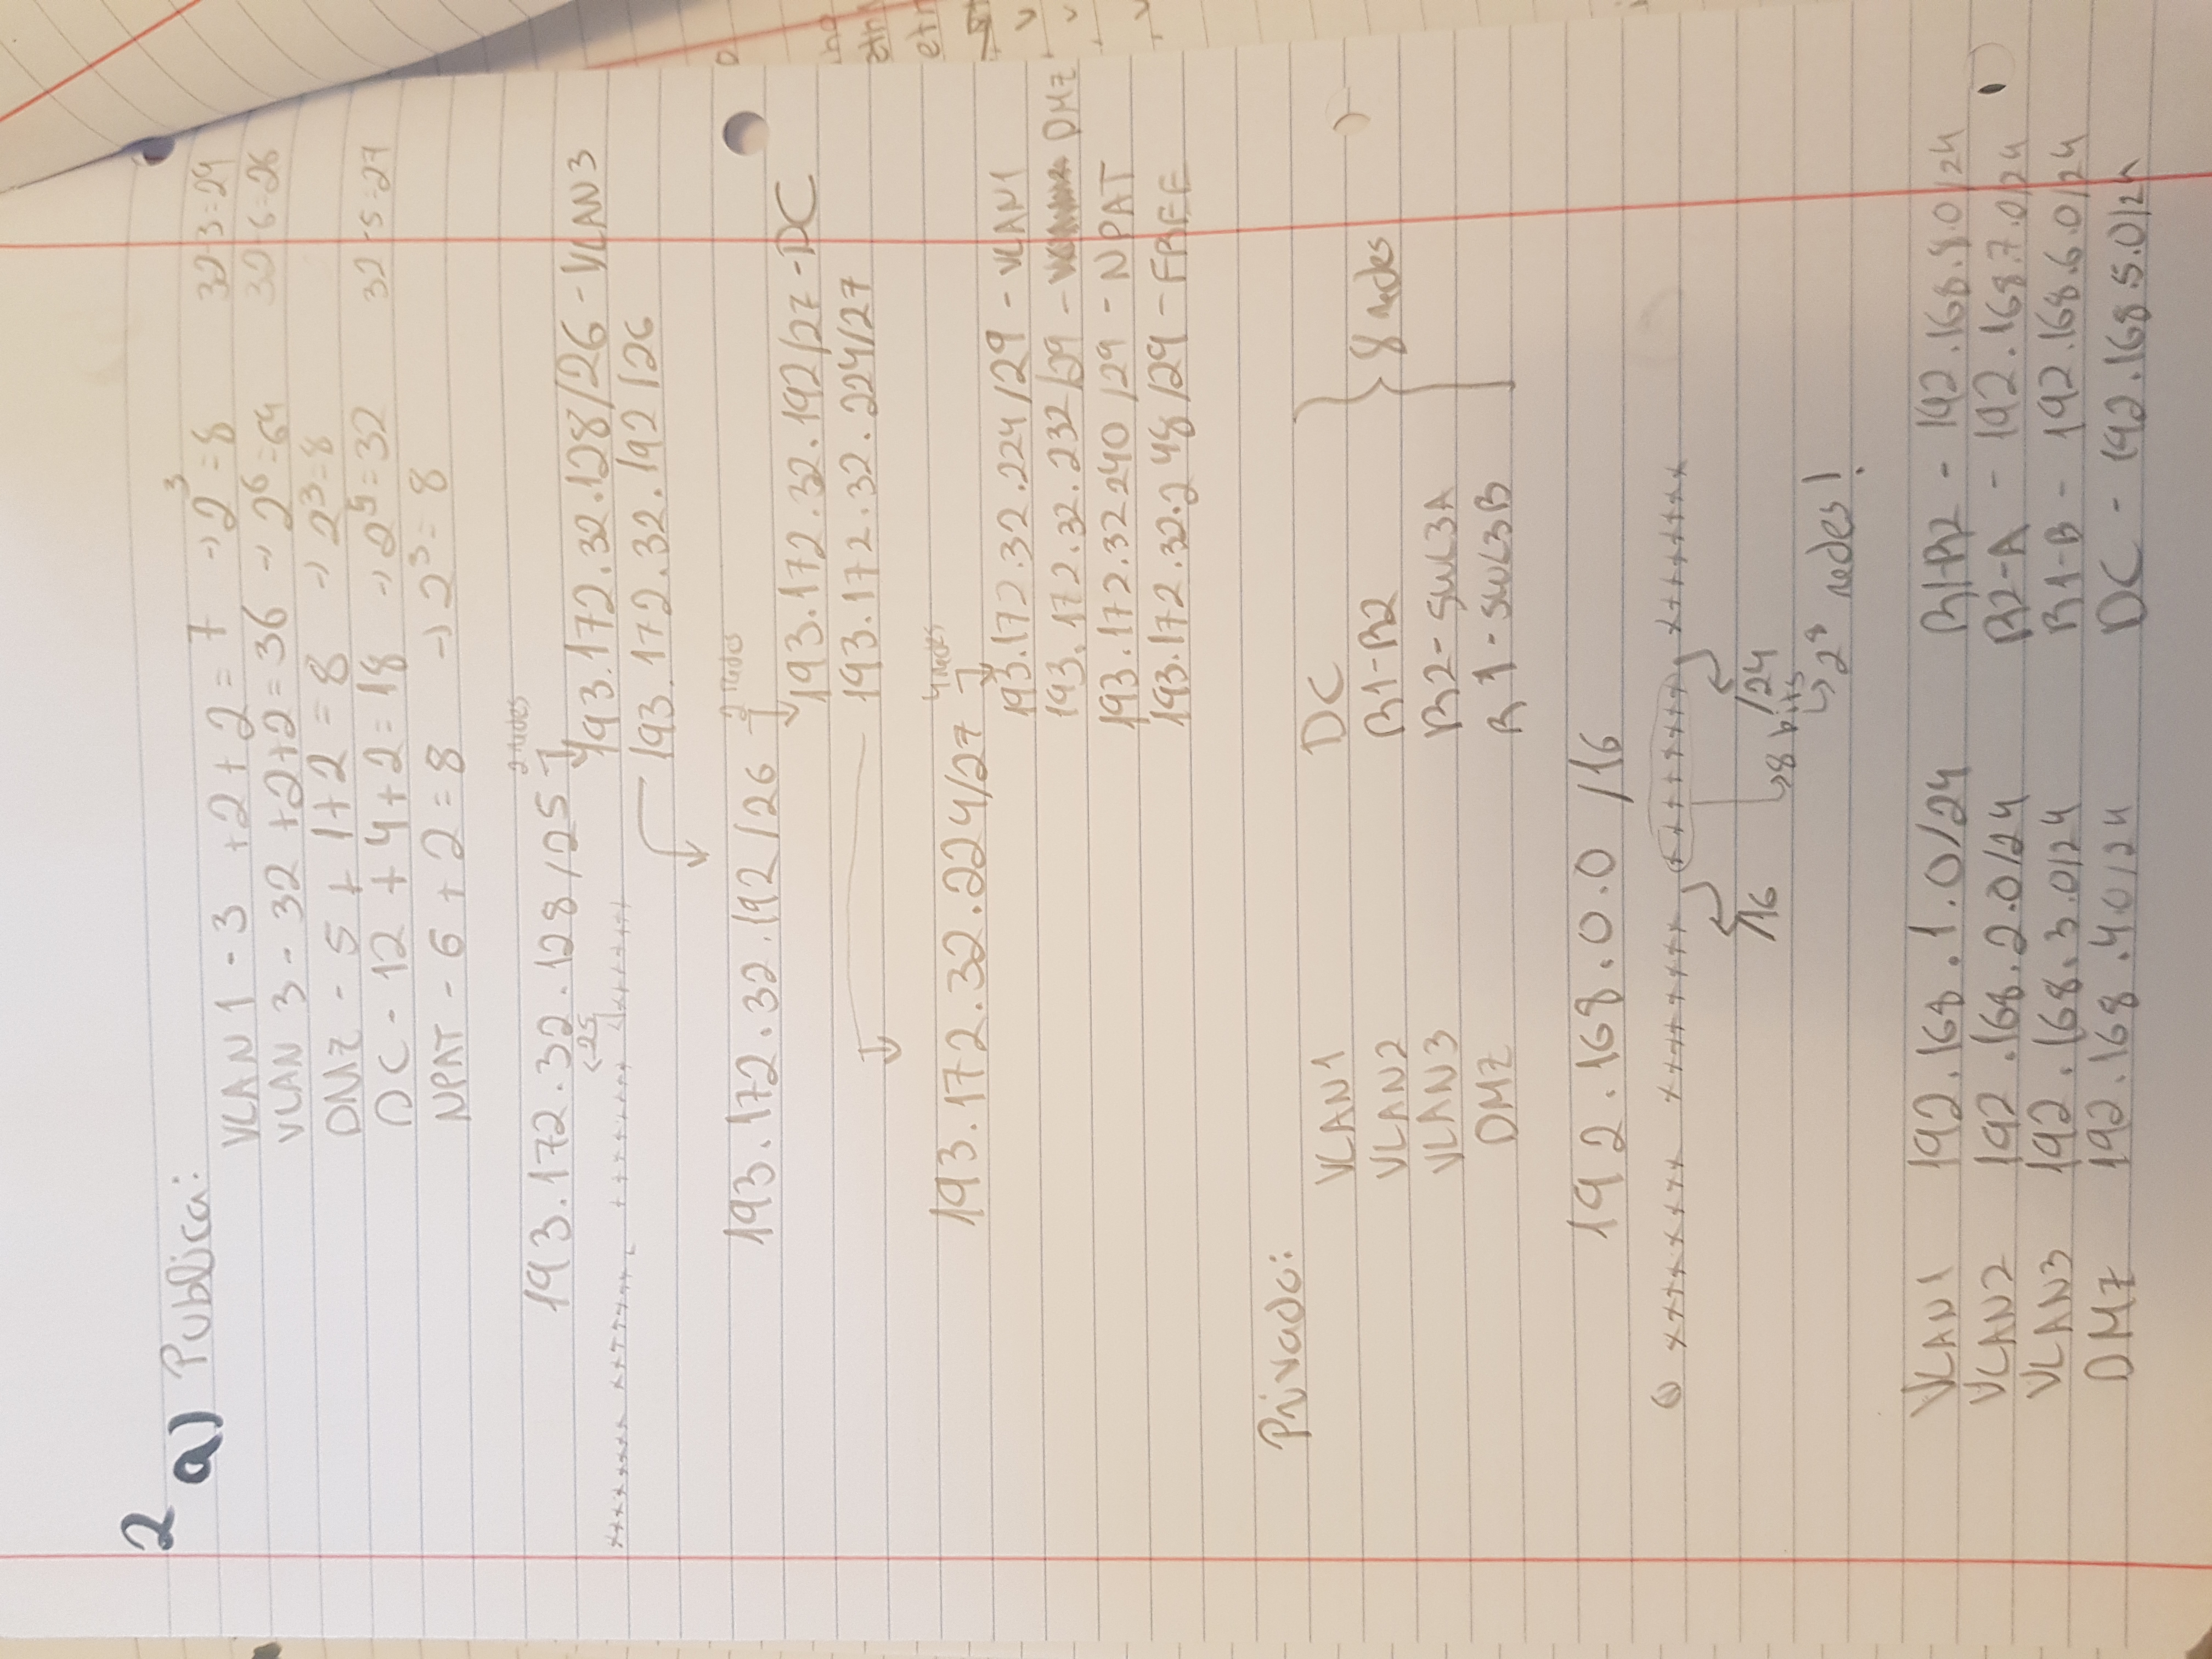 2
a) Publica:
VLAN 1 - 3 + 2 + 2 = 7 → 2^3 = 8 32-3=29
VLAN 3 - 32 + 2 + 2 = 36 → 2^6 = 64 32-6=26
DMZ - 5 + 1 + 2 = 8 → 2^3 = 8
DC - 12 + 4 + 2 = 18 → 2^5 = 32 32-5=27
NPAT - 6 + 2 = 8 → 2^3 = 8
2 redes
193.172.32.128/25
193.172.32.128/26 - VLAN3
<25
193.172.32.192/26
2 redes
193.172.32.192/26
193.172.32.192/27 - DC
193.172.32.224/27
4 redes
193.172.32.224/27
193.172.32.224/29 - VLAN1
193.172.32.232/29 - DMZ
193.172.32 240/29 - NPAT
193.172.32.248/29 - FREE
Privado:
VLAN1 DC
VLAN2 R1-R2 8 redes
VLAN3 R2-SWL3A
DMZ R1-SWL3B
192.168.0.0 /16
xxxxxxxx xxxxxxxx xxxxxxxx xxxxxxxx
/16 /24
8 bits
2^8 redes!
VLAN1 192.168.1.0/24 R1-R2 - 192.168.8.0/24
VLAN2 192.168.2.0/24 R2-A - 192.168.7.0/24
VLAN3 192.168.3.0/24 R1-B - 192.168.6.0/24
DMZ 192.168.4.0/24 DC - 192.168.5.0/24